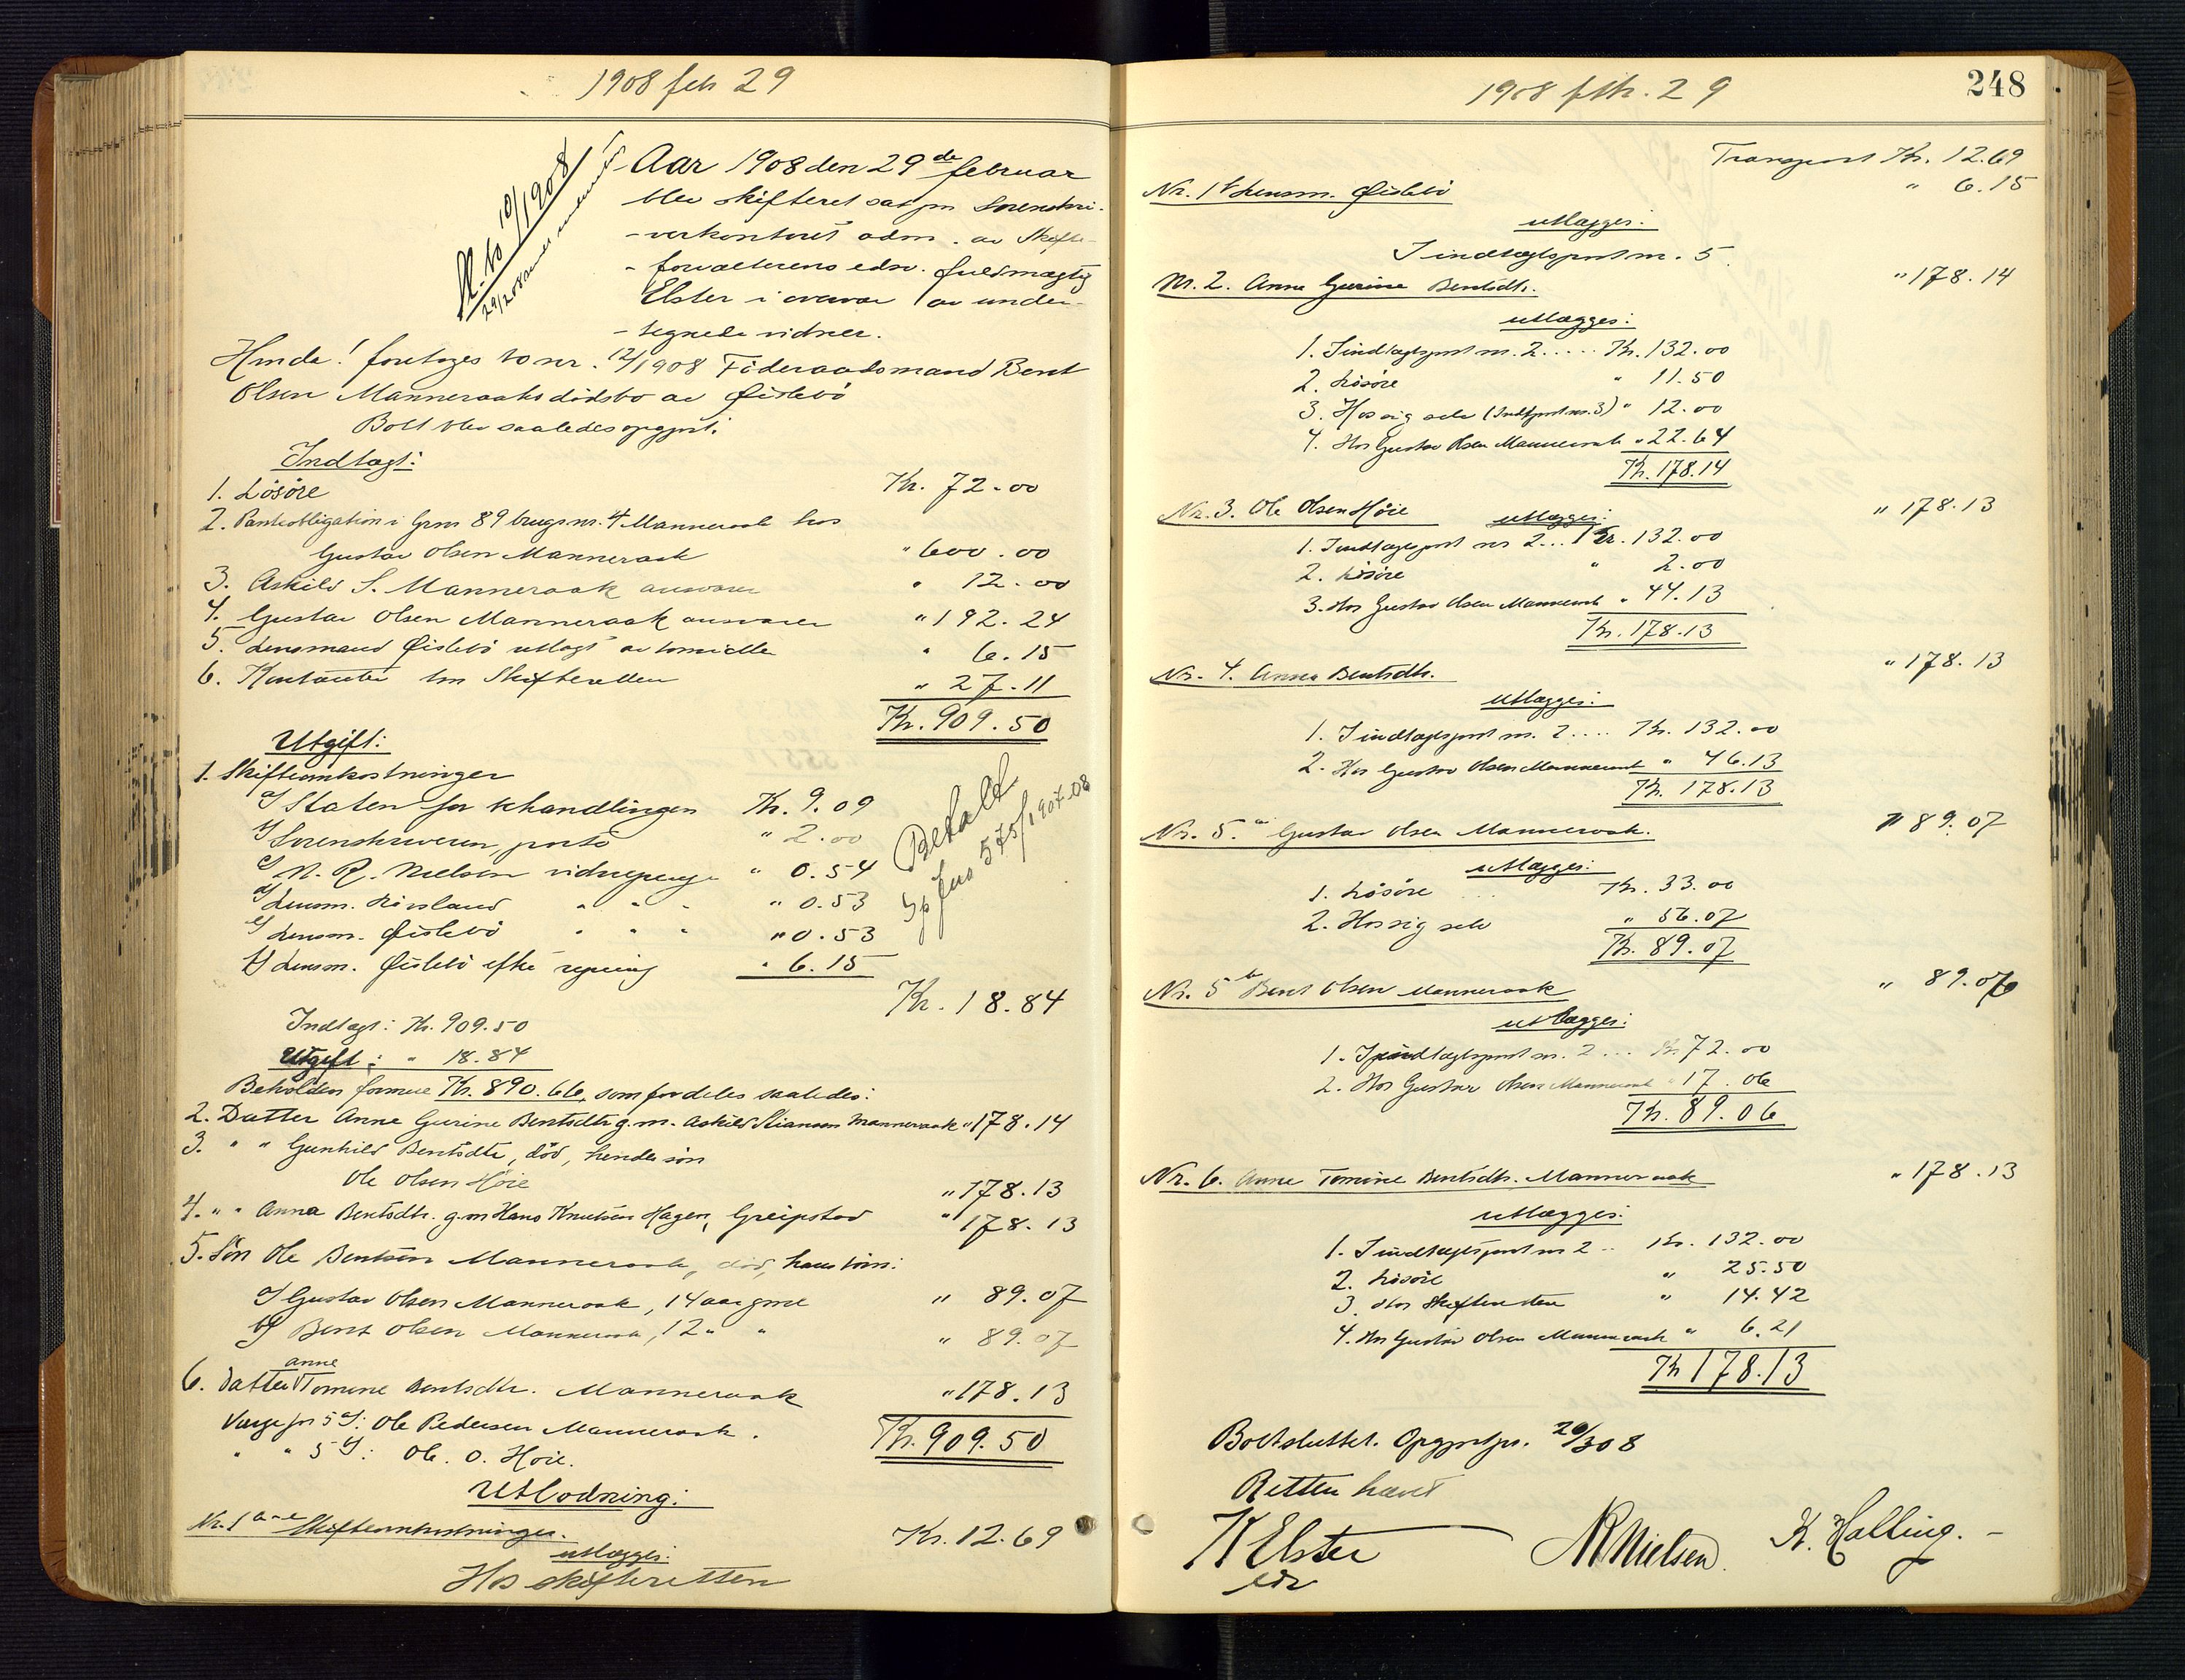 1908 feb 29
10/1908
Aar 1908 den 29de februar
blev skifteret sat paa Sorenskri-
-verkontoret adm. av Skifte-
-forvalterens edsv. fuldmægtig
Elster i overvær av under-
-tegnede vidner.
Hvorda! foretoges bo nr. 12/1908 Föderaadsmand Bent
Olsen Manneraaks dödsbo av Øislebö
Boet blev saaledes opgjort:
Indtægt:
1. Lösöre Kr. 72.00
2. Panteobligation i Grnr 89 brugsnr. 4 Manneraak hos
Gustav Olsen Manneraak " 600.00
3. Askild S. Manneraak ansvarer " 12.00
4. Gustav Olsen Manneraak ansvarer " 192.24
5. Lensmand Øislebö utlagt av bomidler " 6.15
6. Kontanter hos Skifteretten " 27.11
Kr. 909.50
Utgift:
1. Skifteomkostninger
a) Staten for behandlingen Kr. 9.09
b) Sorenskriveren, porto " 2.00
c) N. R. Nielsen vidnepenge " 0.54
d) Lensm. Kirsland " " " " 0.53
e) Lensm. Øislebö " " " " 0.53
f) Lensm. Øislebö efter regning " 6.15
Betalt
575/1907-08
Kr. 18.84
Indtægt: Kr. 909.50
Utgift: " 18.84
Beholden formue Kr. 890.66, som fordeles saaledes:
2. Datter Anne Gurine Bentsdtr g.m. Askild Stianson Manneraak " 178.14
3. " " Gunhild Bentsdtr, död, hendes sön
Ole Olsen Höie " 178.13
4. " " Anna Bentsdtr. g.m Hans Knutsen Hagen, Greipstad " 178.13
5. Sön Ole Bentsen Manneraak, död, hans börn:
a) Gustav Olsen Manneraak, 14 aar gml " 89.07
b) Bent Olsen Manneraak, 12 " " " 89.07
anne
6. Datter Tomine Bentsdtr. Manneraak " 178.13
Værge for 5 a): Ole Pedersen Manneraak.
Kr. 909.50
" " 5 b): Ole O. Höie.
Utlodning:
Nr. 1 a-e Skifteomkostninger. Kr. 12.69
utlægges:
Hos skifteretten
1908 feb. 29
248
Transport Kr. 12.69
Nr. 1 f Lensm. Øislebö " 6.15
utlægges:
I indtægtspost nr. 5.
Nr. 2. Anne Gurine Bentsdtr. " 178.14
utlægges:
1. I indtægtspost nr. 2..... Kr. 132.00
2. Lösöre " 11.50
3. Hos sig selv (Indtpost nr. 3) " 12.00
4. Hos Gustav Olsen Manneraak " 22.64
Kr. 178.14
Nr. 3. Ole Olsen Höie " 178.13
utlægges:
1. I indtægtspost nr 2... Kr. 132.00
2. Lösöre " 2.00
3. Hos Gustav Olsen Manneraak " 44.13
Kr. 178.13
Nr. 4. Anna Bentsdtr. " 178.13
utlægges:
1. I indtægtspost nr. 2.... Kr. 132.00
2. Hos Gustav Olsen Manneraak " 46.13
Kr. 178.13
Nr. 5.a Gustav Olsen Manneraak. " 89.07
utlægges:
1. Lösöre ... Kr. 33.00
2. Hos sig selv " 56.07
Kr. 89.07
Nr. 5 b Bent Olsen Manneraak " 89.06
utlægges:
1. I indtægtspost nr. 2... Kr. 72.00
2. Hos Gustav Olsen Manneraak " 17.06
Kr. 89.06
Nr. 6. Anne Tomine Bentsdtr. Manneraak " 178.13
utlægges:
1. I indtægtspost nr 2.. Kr. 132.00
2. Lösöre " 25.50
3. Hos Skifteretten " 14.42
4. Hos Gustav Olsen Manneraak " 6.21
Kr 178.13
Boet sluttet.
Retten hævet
K Elster
edsv
NRNielsen
K. Halling.